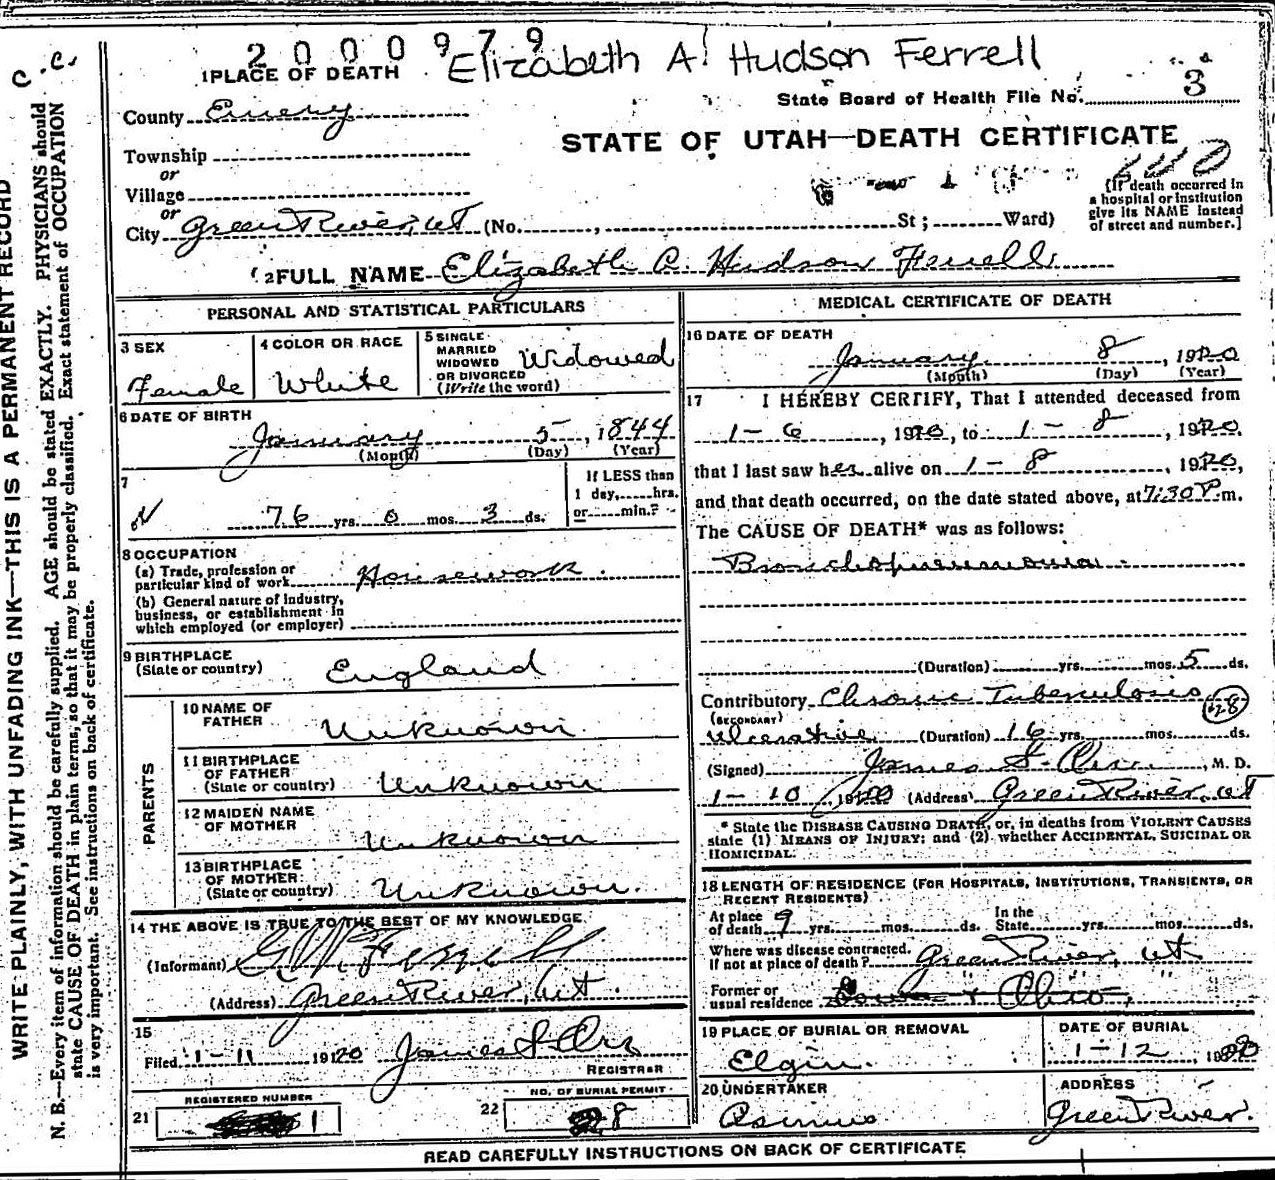 C. C.
2000979
Elizabeth A. Hudson Ferrell
1 PLACE OF DEATH
State Board of Health File No. 3
County Emery
STATE OF UTAH—DEATH CERTIFICATE
Township
or
Village
or
City Green River, Ut (No. , St ; Ward)
[If death occurred in
a hospital or institution
give its NAME instead
of street and number.]
2 FULL NAME Elizabeth A. Hudson Ferrell
PERSONAL AND STATISTICAL PARTICULARS
3 SEX
Female
4 COLOR OR RACE
White
5 SINGLE
MARRIED
WIDOWED
OR DIVORCED
(Write the word)
Widowed
6 DATE OF BIRTH
January 5, 1844
(Month) (Day) (Year)
7
76 yrs. 0 mos. 3 ds.
If LESS than
1 day, hrs.
or min.?
8 OCCUPATION
(a) Trade, profession or
particular kind of work Housework.
(b) General nature of industry,
business, or establishment in
which employed (or employer)
9 BIRTHPLACE
(State or country) England
PARENTS
10 NAME OF
FATHER Unknown.
11 BIRTHPLACE
OF FATHER
(State or country) Unknown
12 MAIDEN NAME
OF MOTHER Unknown
13 BIRTHPLACE
OF MOTHER
(State or country) Unknown.
14 THE ABOVE IS TRUE TO THE BEST OF MY KNOWLEDGE
(Informant) G W Ferrell
(Address) Green River, Ut.
15
Filed 1-11 1920
REGISTRAR
REGISTERED NUMBER
21 1
NO. OF BURIAL PERMIT
22 8
MEDICAL CERTIFICATE OF DEATH
16 DATE OF DEATH
January 8, 1920
(Month) (Day) (Year)
17 I HEREBY CERTIFY, That I attended deceased from
1-6, 1920, to 1-8, 1920,
that I last saw her alive on 1-8, 1920,
and that death occurred, on the date stated above, at 7:30 P. m.
The CAUSE OF DEATH* was as follows:
Bronchopneumonia.
(Duration) yrs. mos. 5 ds.
Contributory Chronic Tuberculosis
(SECONDARY)
Ulcerative (Duration) 16 yrs. mos. ds.
(Signed) James , M. D.
1-10, 1920 (Address) Green River, Ut
* State the DISEASE CAUSING DEATH, or, in deaths from VIOLENT CAUSES
state (1) MEANS OF INJURY; and (2) whether ACCIDENTAL, SUICIDAL OR
HOMICIDAL.
18 LENGTH OF RESIDENCE (FOR HOSPITALS, INSTITUTIONS, TRANSIENTS, OR
RECENT RESIDENTS)
At place
of death 9 yrs. mos. ds.
In the
State yrs. mos. ds.
Where was disease contracted,
If not at place of death? Green River, Ut
Former or
usual residence Ohio
19 PLACE OF BURIAL OR REMOVAL
Elgin.
DATE OF BURIAL
1-12, 1920
20 UNDERTAKER
ADDRESS
Green River.
READ CAREFULLY INSTRUCTIONS ON BACK OF CERTIFICATE
WRITE PLAINLY, WITH UNFADING INK—THIS IS A PERMANENT RECORD
N. B.—Every item of information should be carefully supplied. AGE should be stated EXACTLY. PHYSICIANS should
state CAUSE OF DEATH in plain terms, so that it may be properly classified. Exact statement of OCCUPATION
is very important. See instructions on back of certificate.